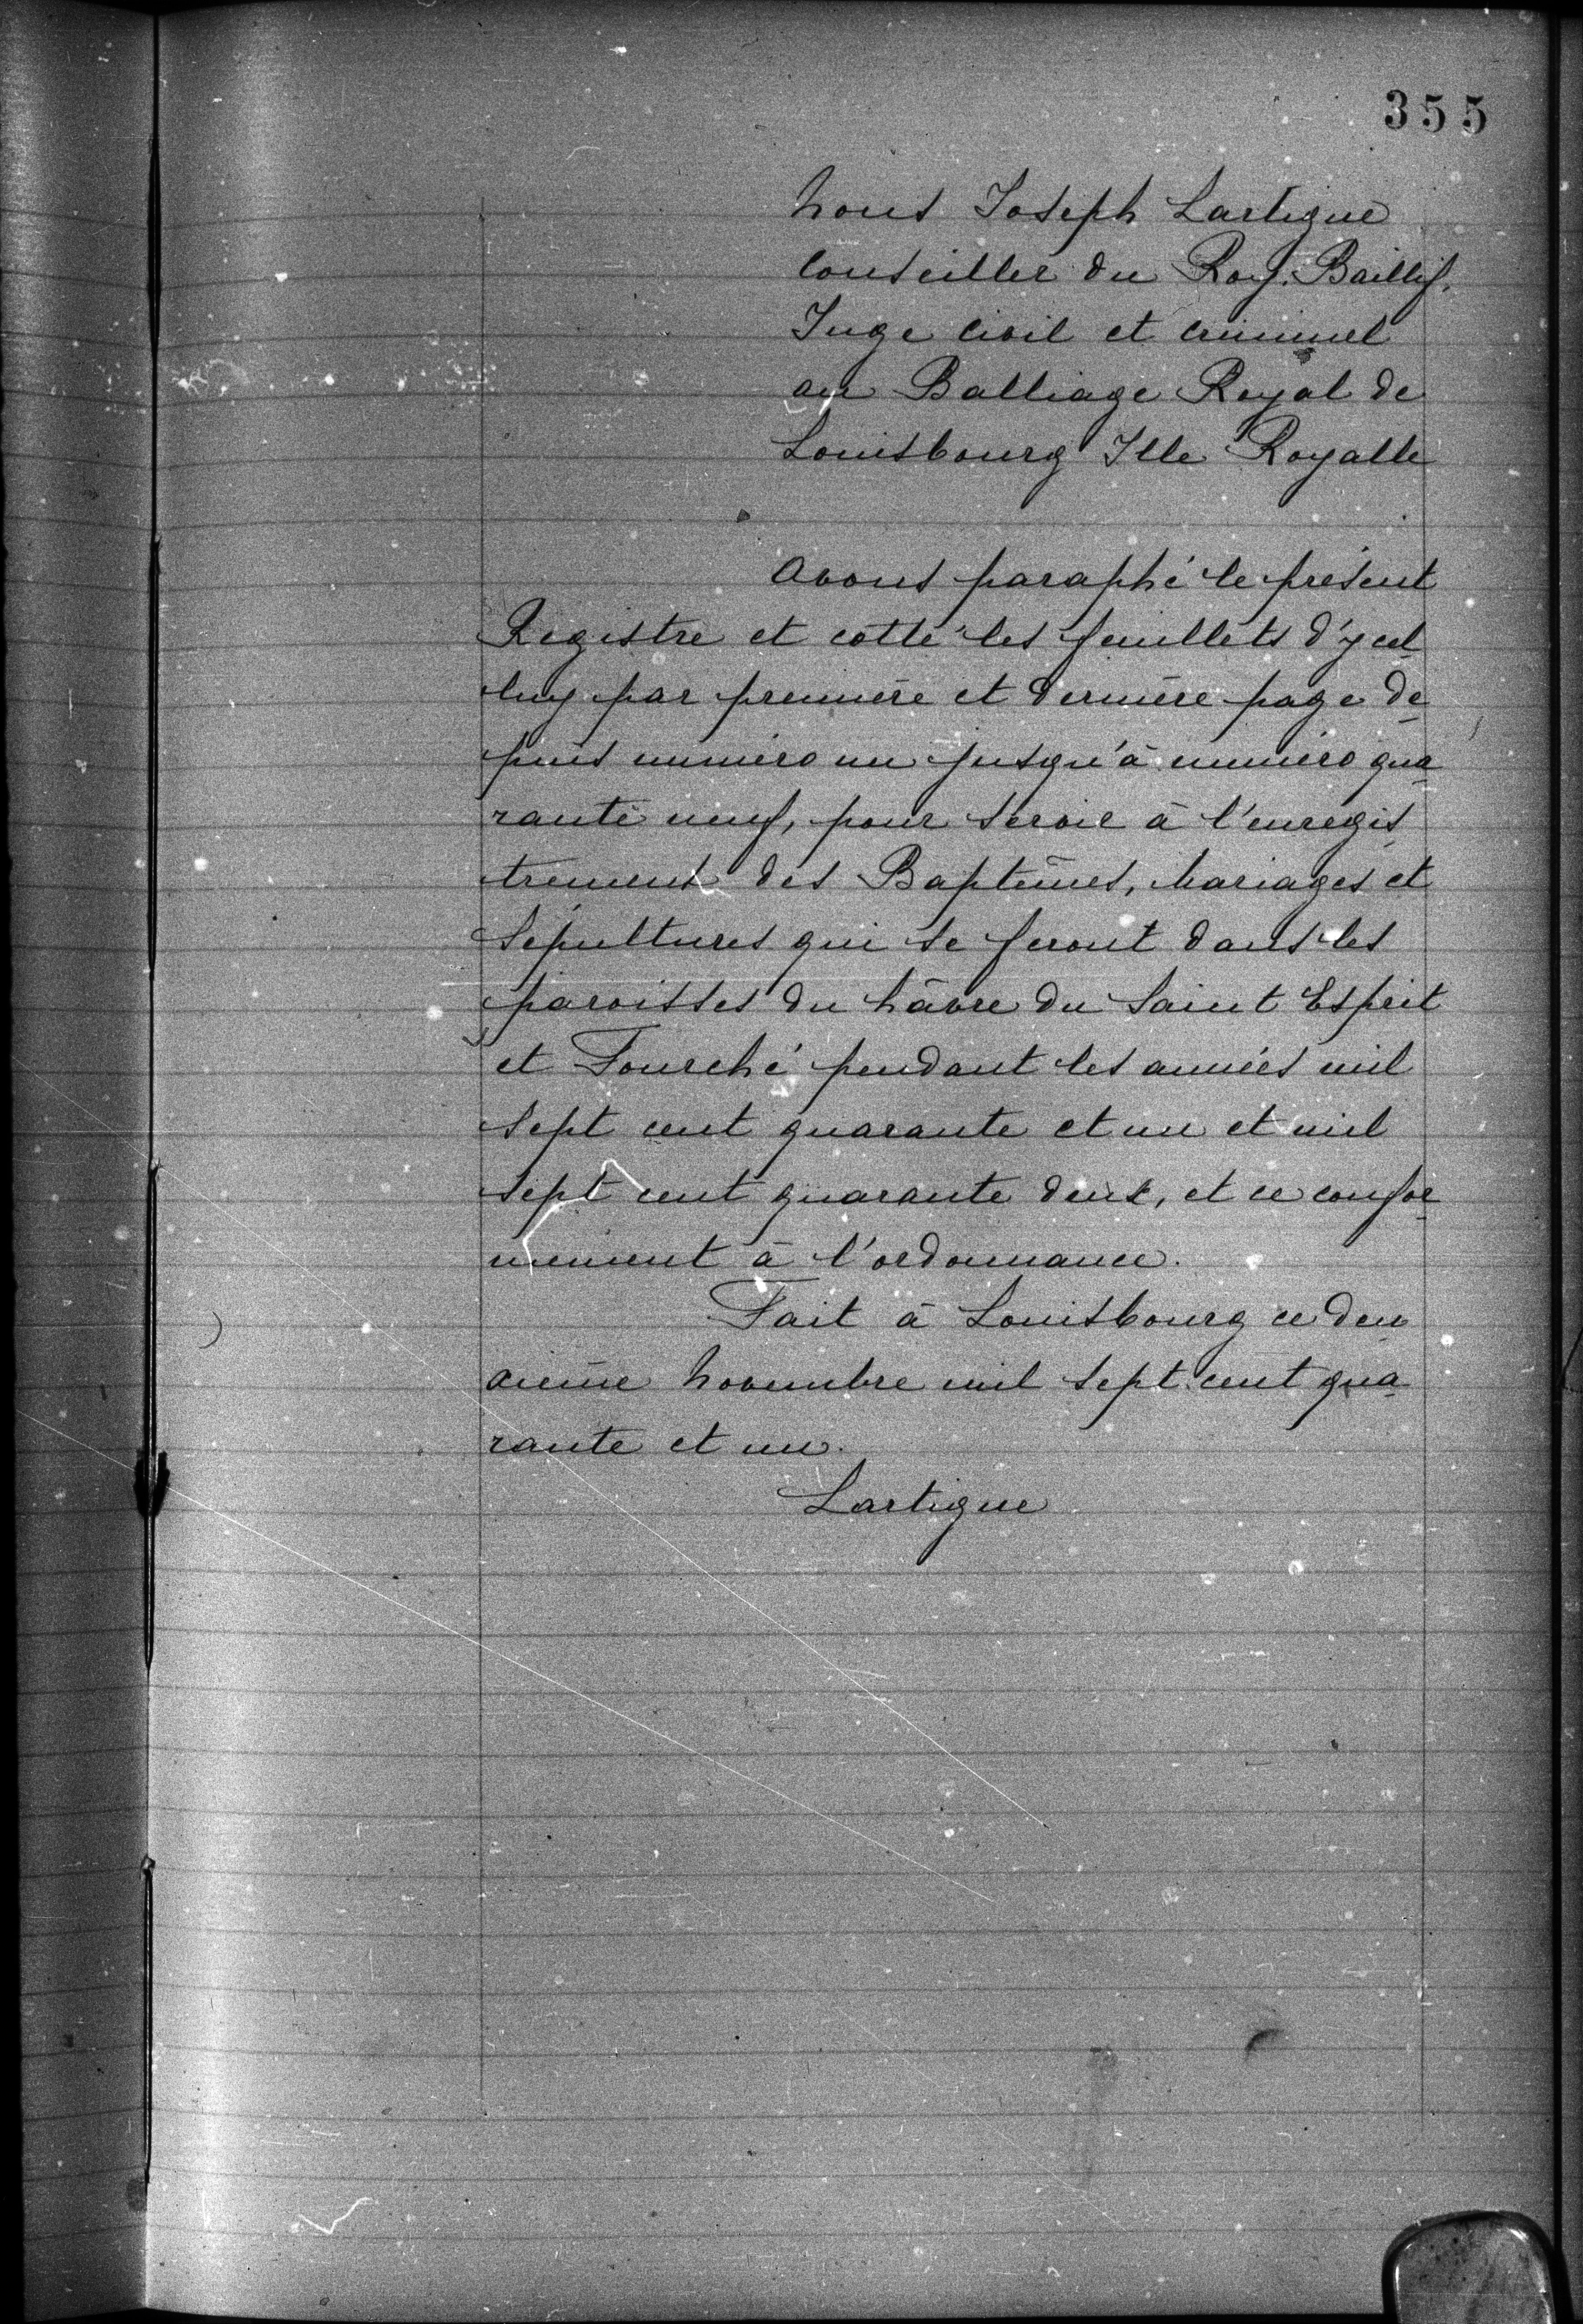 355
Nous Joseph Lartigue
Conseiller du Roy. Baillif.
Juge civil et criminel
au Balliage Royal de
Louisbourg Isle Royalle
Avons paraphé le présent
Registre et cotté les feuillets d'ycel
luy par première et dernière page de
puis numéro un jusqu'à numéro qua
rante neuf, pour servir à l'enregis
trement des Baptêmes, Mariages et
Sépultures qui se feront dans les
paroisses du hâvre du Saint Esprit
et Fourché pendant les années mil
sept cent quarante et un et mil
sept cent quarante deux, et ce confor
mement à l'ordonnance.
Fait à Louisbourg ce deu
xieme Novembre mil sept cent qua
rante et un.
Lartigue